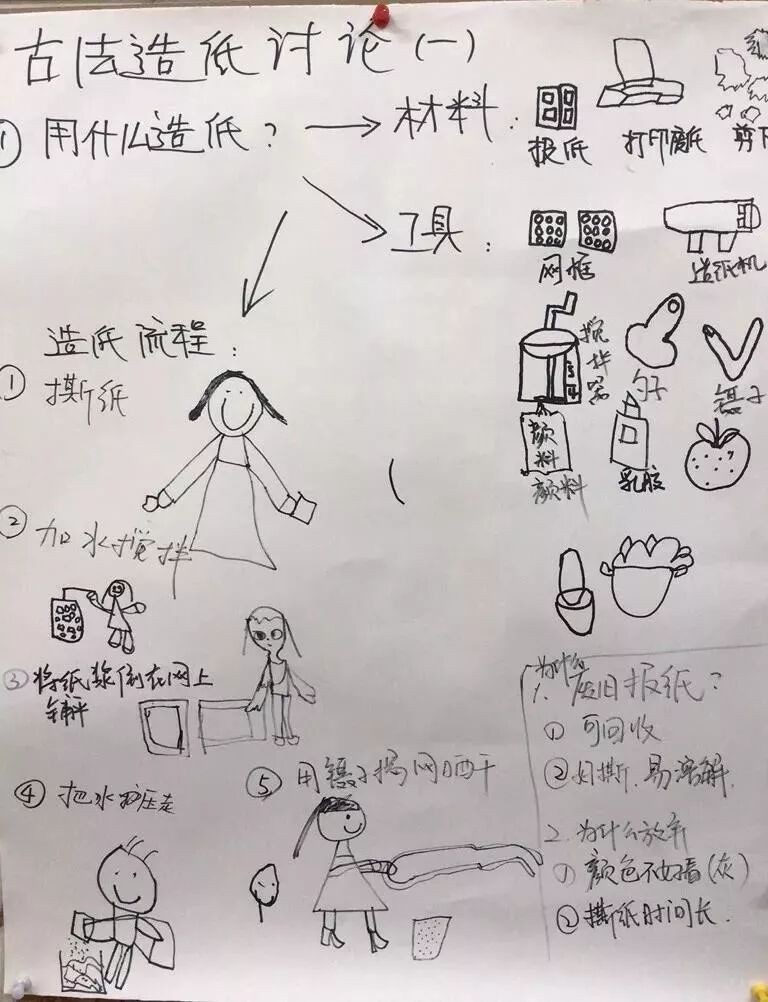 古法造纸讨论(一)
① 用什么造纸? → 材料:
报纸 打印废纸 剪下
工具:
网框 造纸机
搅拌器 勺子 镊子
颜料
颜料 乳胶
造纸流程:
① 撕纸
② 加水搅拌
③ 将纸浆倒在网上
铺平
④ 把水压走
⑤ 用镊子揭网晒干
为什么
1. 废旧报纸?
① 可回收
② 好撕、易溶解.
2. 为什么放弃
① 颜色不好看(灰)
② 撕纸时间长.